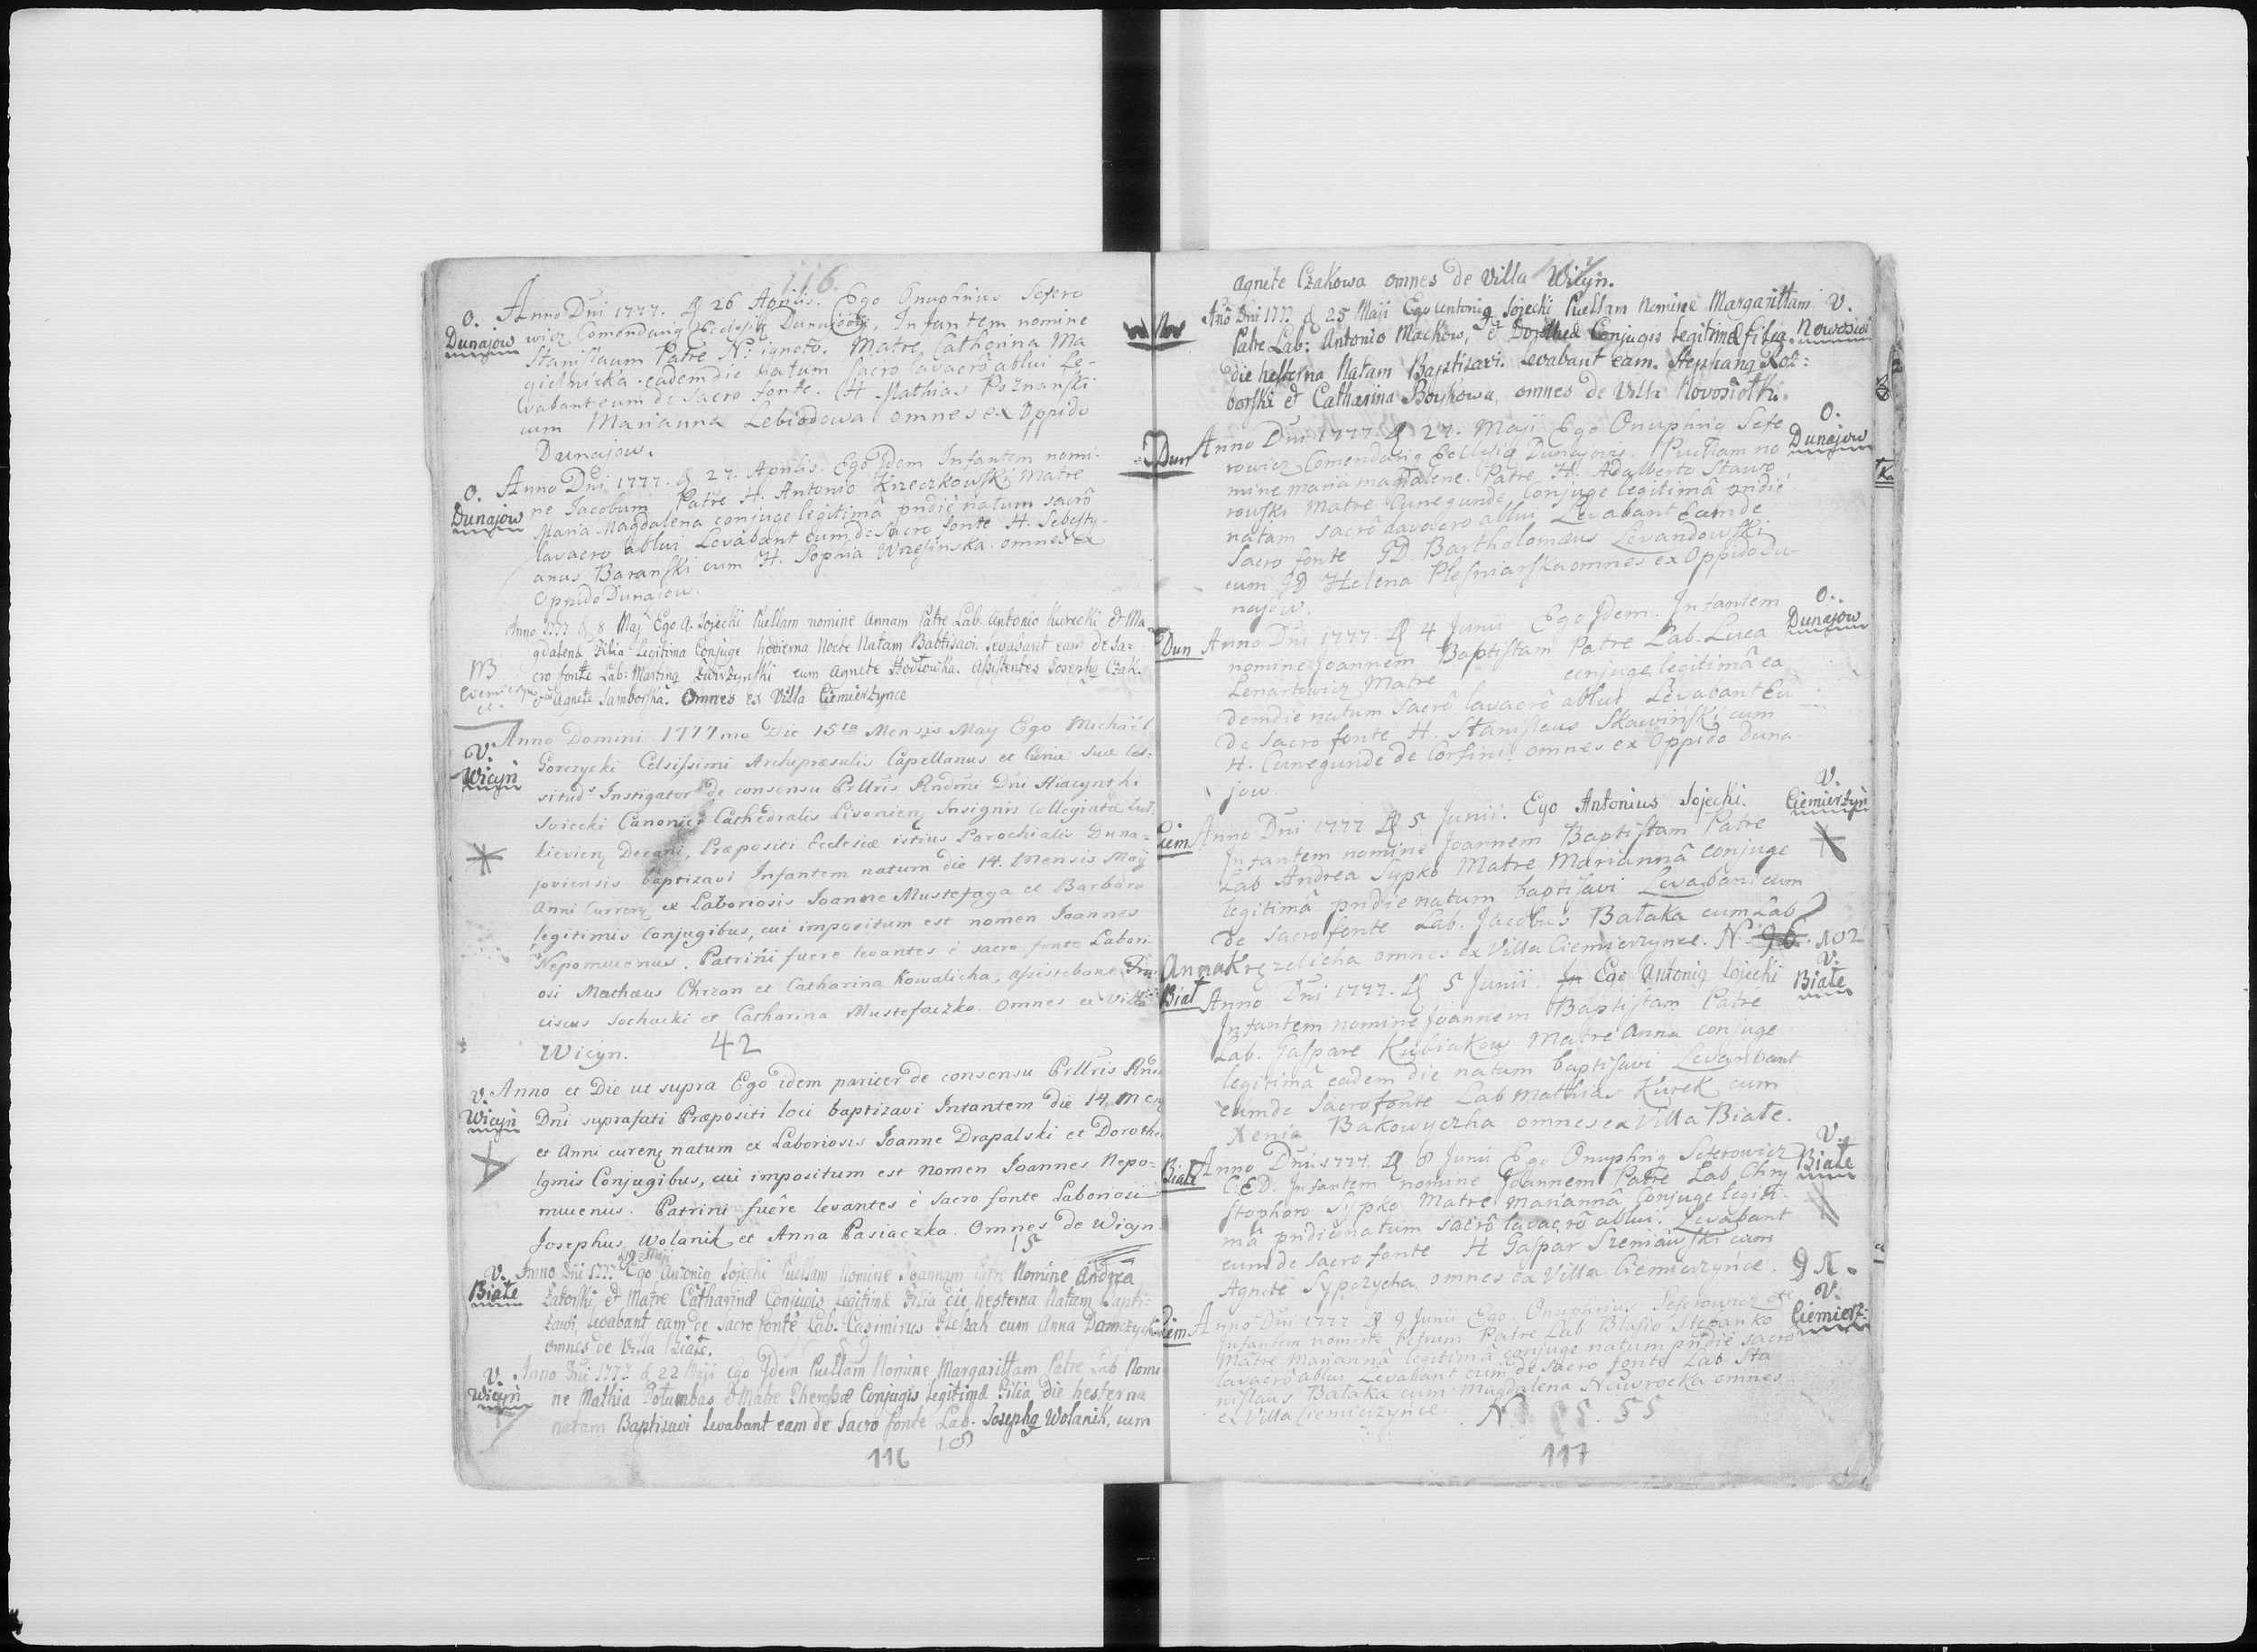 116
O.
Dunajow
Anno Dni 1777. d 26 Aprilis. Ego Onuphrius Sefero
wicz Comendariq Ecclesiæ Dunajoviy, Infantem nomine
Stanislaum Patre N: ignoto. Matre Catherina Ma
gielnicka eadem die natum sacro lavacrô ablui Le-
vabant eum de sacro fonte. H Mathias Poznanski
cum Marianna Lebiodowa omnes ex Oppido
Dunajow.
O.
Dunajow
Anno Dni 1777. d 27. Aprilis. Ego Idem Infantem nomi-
ne Jacobum Patre H. Antonio Krzeczkowski Matre
Maria Magdalena conjuge legitimâ pridiè natum sacrô
lavacro ablui Levabant eum de Sacro fonte H. Sebesty-
anus Baranski cum H. Sophia Wrzesinska omnes ex
Oppido Dunajow.
Anno 1777 d 8 Maj Ego A. Sojecki Puellam nomine Annam Patre Lab. Antonio Kurecki et Ma
gdalena Filia Legitima Conjuge hodierna Nocte Natam Babtisavi. Levabant eam de Sa=
cro fonte Lab: Martinq Zwirzynski cum Agnete Stodtowka. Assistentes Josephq Czak.
et Agnete Samborska. Omnes ex Villa Ciemierzynce
V.
Wicyn
Anno Domini 1777mo Die 15ta Mensis Maÿ Ego Michaël
Gorczycki Celsissimi Archipræsulis Capellanus et Curiæ suæ Cel-
situds Instigator de consensu Prllris Rndmi Dni Hiacynthi
Soiecki Canonici Cathedralis Livonieng Insignis Collegiatæ Zul-
kieviens Decani, Præpositi Ecclesiæ istius Parochialis Duna-
joviensis baptizavi Infantem natum die 14. Mensis Maÿ
Anni Curreng ex Laboriosis Joanne Mustefaga et Barbara
legitimis Conjugibus, cui impositum est nomen Joannes
Nepomucenus. Patrini fuere levantes è sacro fonte Labori-
osi Mathæus Chrzon et Catharina Kowalicha, assistebant Fran-
ciscus Sochacki et Catharina Mustefaczko. Omnes ex Villa
Wicyn. 42
V.
Wicyn
Anno et Die ut supra Ego idem pariter de consensu Prllris Rnd
Dni suprafati Præpositi loci baptizavi Infantem die 14 Men
et Anni cureng natum ex Laboriosis Joanne Drapalski et Dorothea
lgmis Conjugibus, cui impositum est nomen Joannes Nepo-
mucenus. Patrini fuêre levantes è sacro fonte Laboriosi
Josephus Wolanik et Anna Pasiaczka. Omnes de Wicyn
15
V.
Białe
d 19 Maji
Anno Dni 1777. Ego Antoniq Sojecki Puellam Nomine Joannam Patre Nomine Andrea
Zatorski et Matre Catharinæ Conjugis Legitimæ Filia die hesterna Natam Bapti-
zavi, Levabant eam de Sacro fonte Lab. Casimirus Pleszak cum Anna Damczych
omnes de Villa Białe. 59
V.
Wicyn
Anno Dni 1777 d 22 Maji Ego Idem Puellam Nomine Margarittam Patre Lab Nomi
ne Mathia Potumbas et Matre Theresæ Conjugis Legitimæ Filia die hesterna
natam Baptizavi Levabant eam de Sacro fonte Lab. Josephq Wolanik, cum
116
Agnete Czakowa omnes de Villa Wicyn.
Año Dni 1777 d 25 Maji Ego Antoniq Sojecki Puellam Nomine Margarittam
Patre Lab: Antonio Mackow, et Dorothea Conjugis Legitimæ filia
die hesterna Natam Baptizavi. Levabant eam. Stephanq Roz=
borski et Catharina Boykowa, omnes de Villa Novosiołki.
V.
O.
Dunajow
Dun
Anno Dni 1777. d 27. Maji Ego Onuphriq Sefe
rowicz Comendariq Ecclesiæ Dunajoviy. Puellam no
mine Maria Mandalene. Patre H: Adalberto Stawo
rowski Matre Cunegunde Conjuge legitimâ pridiè
natam sacrô lavacro ablui Levabant Eam de
Sacro fonte GD. Bartholomæus Levandowski
cum GD Helena Plesniarska omnes ex Oppido Du-
najow.
O.
Dunajow
Dun
Anno Dni 1777. d 4 Junii Ego Idem. Infantem
nomine Joannem Baptistam Patre Lab. Luca
Lenartowicz Matre conjuge legitimâ ea
dem die natum sacrô lavacrô ablui Levabant Eū
de Sacro fonte H. Stanislaus Skawinski cum
H. Cunegunde de Corsini omnes ex Oppido Duna-
jow.
V.
Ciemierzyn
Ciem
Anno Dni 1777 d 5 Junii. Ego Antonius Sojecki.
Infantem nomine Joannem Baptistam Patre
Lab Andrea Supko Matre Mariannâ conjuge
legitimâ pridie natum baptisavi Levabant eum
de sacro fonte Lab. Jacobus Bałaka cum Lab
Anna Kręzelicha omnes ex Villa Ciemierzynce. N. 96. 102
V.
Białe
Biał
Anno Dni 1777. d 5 Junii. In Ego Antoniq Sojecki
Infantem nomine Joannem Baptistam Patre
Lab. Gaspare Kubiakow Matre Anna conjuge
legitimâ eadem die natum baptisavi Levanbant
eum de sacro fonte Lab Mathias Kurek cum
Xenia Bakowyczha omnes ex Villa Białe.
V.
Białe
Białe
Anno Dni 1777. d 8 Junii Ego Onuphriq Seferowicz
C.E.D. Infantem nomine Joannem Patre Lab Chry
stophoro Sypko Matre Mariannâ Conjuge legiti-
mâ pridie natum sacrô lavacrô ablui. Levabant
eum de sacro fonte H Gaspar Szeniawski cum
Agnete Sypczycha omnes ex Villa Ciemierzynce.
V.
Ciemierz-
Ciem
Anno Dni 1777 d 9 Junii Ego Onuphrius Seferowicz etc
Infantem nomine Petrum Patre Lab Blasio Stepanko
Matre Mariannâ legitimâ conjuge natum pridiè sacro
lavacrô ablui Levabant eum de sacro fonte Lab Sta
nislaus Bałaka cum Magdalena Nawrocka omnes
ex Villa Ciemierzynce. N 55
117